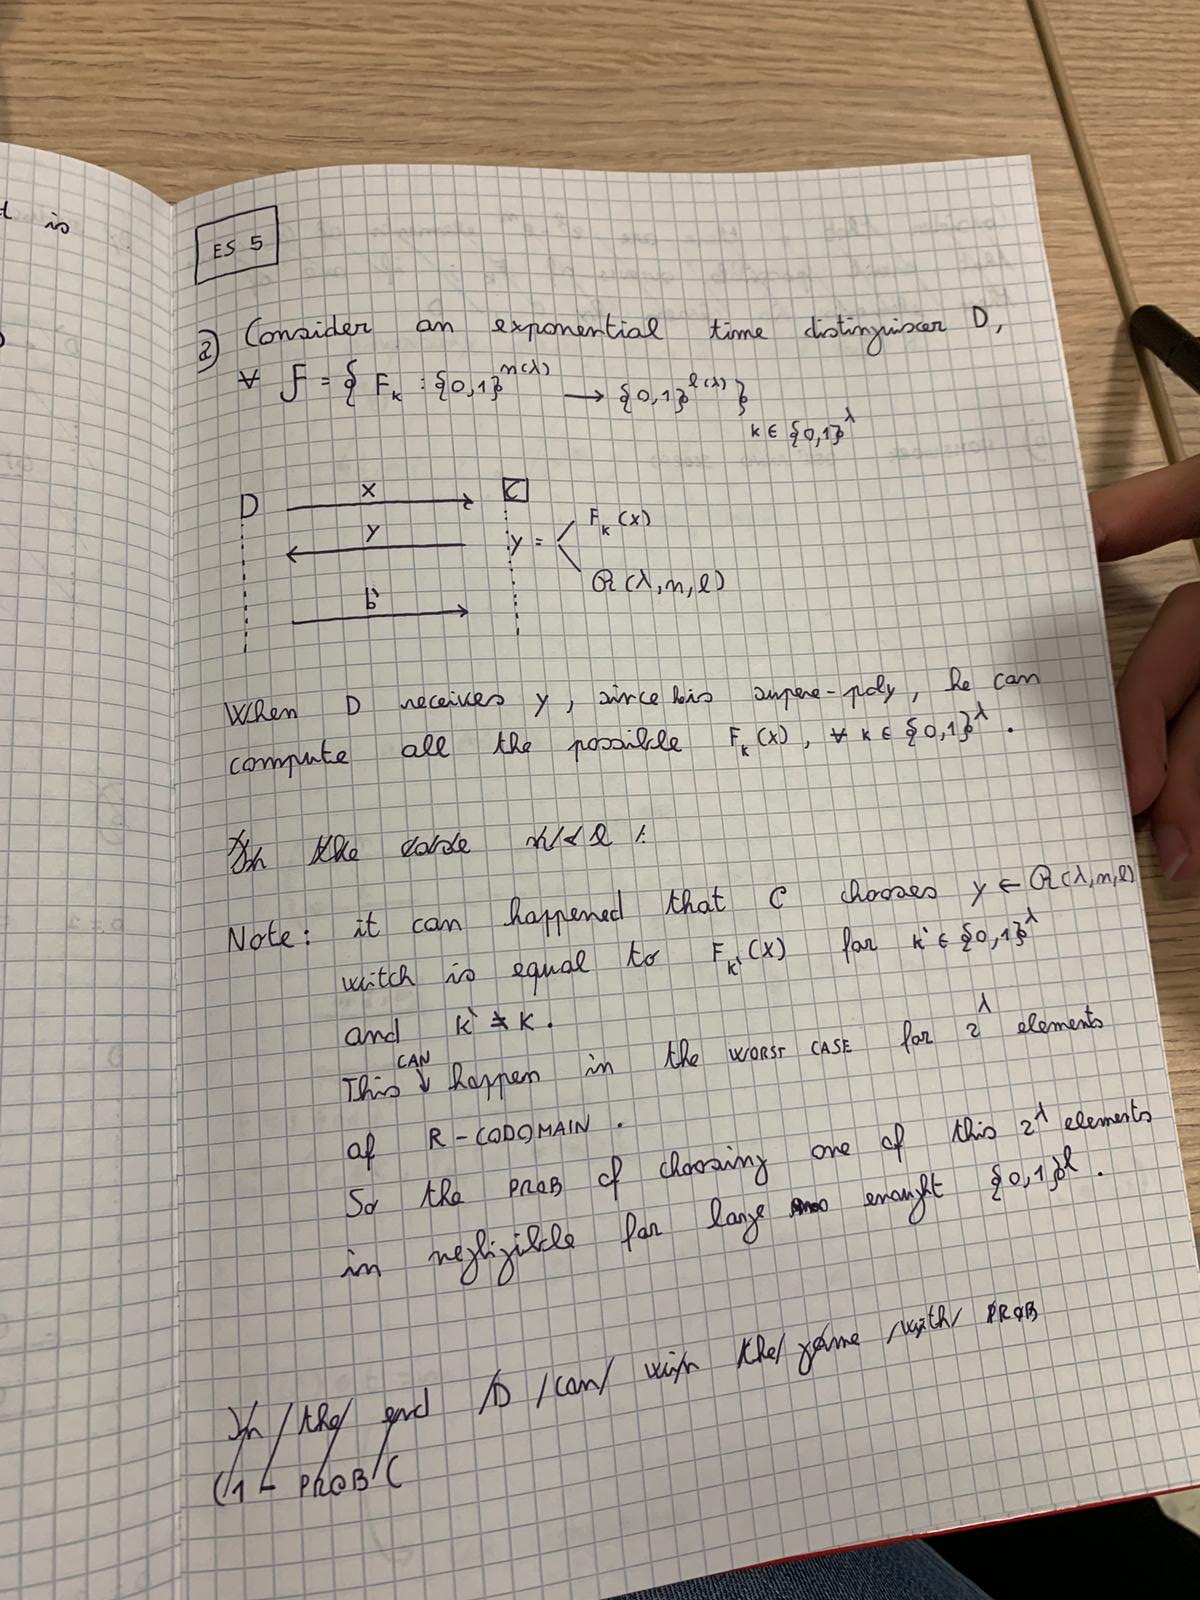 is
ES 5
a) Consider an exponential time distinguiscer D,
∀ F = { F_k : {0,1}^n(λ) → {0,1}^l(λ) } k ∈ {0,1}^λ
D x C
y y = F_k(x)
R(λ,n,l)
b'
When D receives y, since his supere-poly, he can
compute all the possible F_k(x), ∀ k ∈ {0,1}^λ.
In the case n < l :
Note: it can happened that C chooses y ← R(λ,n,l)
witch is equal to F_k'(x) for k' ∈ {0,1}^λ
and k' ≠ k.
This CAN happen in the WORST CASE for 2^λ elements
of R-CODOMAIN.
So the PROB of choosing one of this 2^λ elements
in negligible for large enought {0,1}^l.
In the end D can win the game with PROB
(1 - PROB (